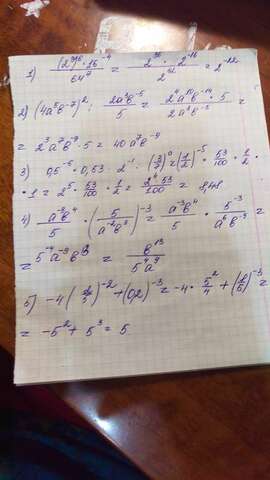 1) (2³)¹⁶ · 16⁻⁴ / 64⁴ = 2³⁶ · 2⁻¹⁶ / 2⁴² = 2⁻²²
2) (4a⁵b⁻⁷)² : 2a³b⁻⁵ / 5 = 2⁴a¹⁰b⁻¹⁴ · 5 / 2a³b⁻⁵ =
= 2³a⁷b⁻⁹ · 5 = 40a⁷b⁻⁹
3) 0,5⁻⁵ · 0,53 · 2⁻¹ · (3/7)⁰ = (1/2)⁻⁵ · 53/100 · 1/2 ·
· 1 = 2⁵ · 53/100 · 1/2 = 2⁴ 53 / 100 = 8,48
4) a⁻³b⁴ / 5 · (5 / a⁻²b³)⁻³ = a⁻³b⁴ / 5 · 5⁻³ / a⁶b⁻⁹ =
= 5⁻⁴a⁻⁹b¹³ = b¹³ / 5⁴a⁹
5) -4(2/5)⁻² + (0,2)⁻³ = -4 · 5²/4 + (1/5)⁻³ =
= -5² + 5³ = 5